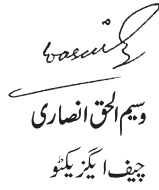 وسیم الحق انصاری
چیف ایگزیکٹو